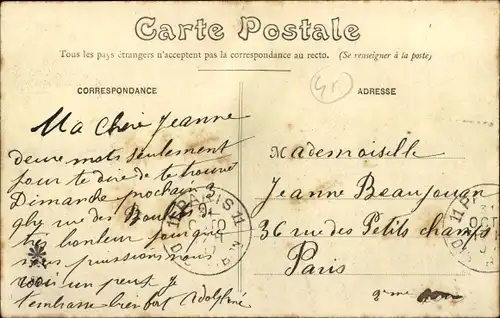 Carte Postale
Tous les pays étrangers n'acceptent pas la correspondance au recto. (Se renseigner à la poste)
CORRESPONDANCE
ADRESSE
Ma Chère Jeanne
deux mots seulement
pour te dire de te trouver
Dimanche prochain a
rue des Boulets
bonheur pourque
nous puissions nous
voir un peux je
t'embrasse bien fort
PARIS 11
Mademoiselle
Jeanne Beaujouan
36 rue des Petits champs
Paris